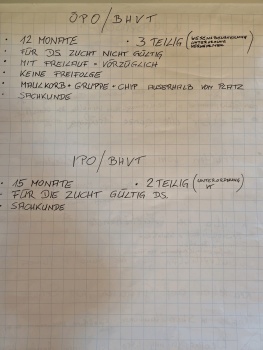 ÖPO / BHVT
· 12 MONATE · 3 TEILIG (WESENSÜBERPRÜFUNG UNTERORDNUNG
· FÜR DS. ZUCHT NICHT GÜLTIG
· MIT FREILAUF = VORZÜGLICH
· KEINE FREIFOLGE
· MAULKORB + GRUPPE + CHIP AUSSERHALB VOM PLATZ
· SACHKUNDE
IPO / BHVT
· 15 MONATE · 2 TEILIG (UNTERORDNUNG VT)
· FÜR DIE ZUCHT GÜLTIG DS.
· SACHKUNDE